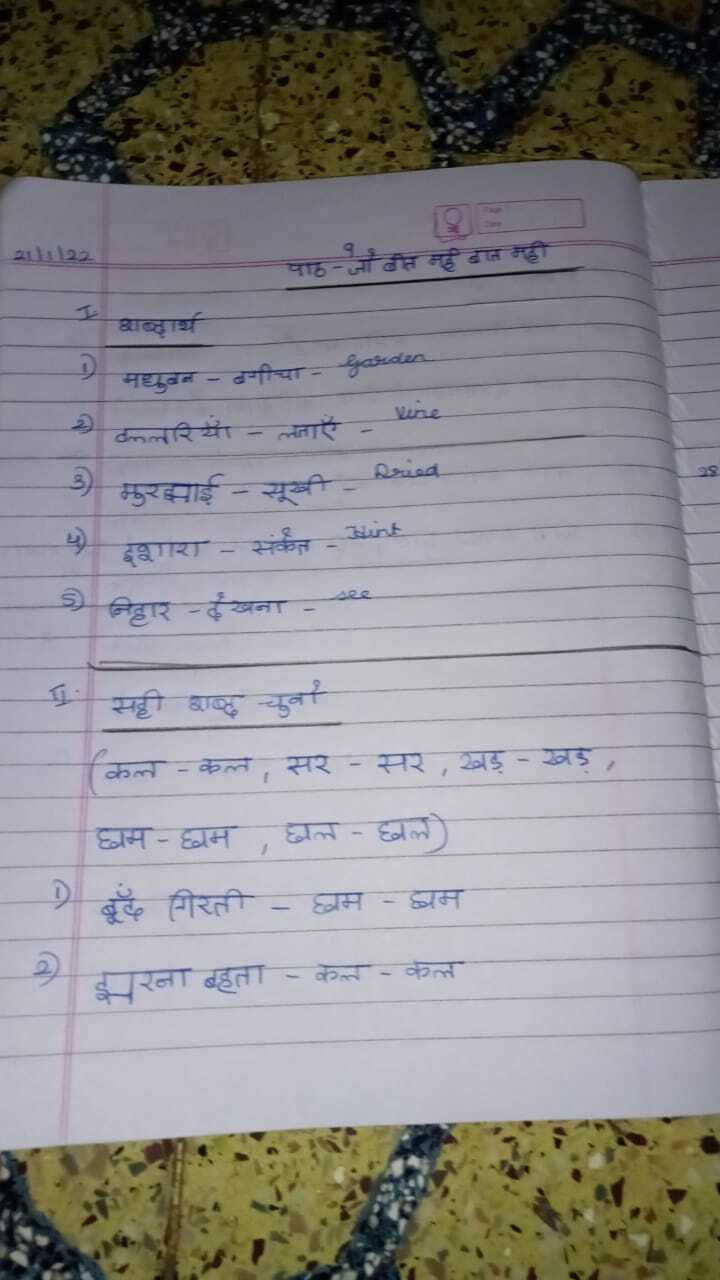 21/1/22
पाठ-९ जो बीत गई बात गई
I शब्दार्थ
1) मधुबन - बगीचा - Garden
2) वल्लरियाँ - लताएँ - Vine
3) मुरझाई - सूखी - Dried
4) इशारा - संकेत - Hint
5) निहार - देखना - see
II. सही शब्द चुनो
(कल - कल, सर - सर, खड़ - खड़,
छम - छम, छल - छल)
1) बूँदें गिरती - छम - छम
2) झरना बहता - कल - कल
28